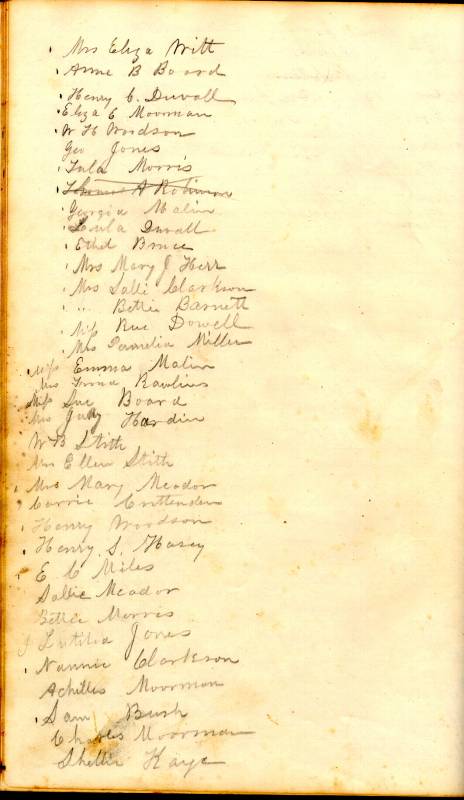 Mrs Eliza Witt
Anne B Board
Henry C. Duvall
Eliza E Moorman
W H Woodson
Geo Jones
Lula Morris
Thomas A Robinson
Georgia Malin
Lula Duvall
Ethel Bruce
Mrs Mary J Herr
Mrs Sallie Clarkson
" " Bettie Barnett
Miss Rue Dowell
Mrs Pamelia Miller
Miss Emma Malin
Mrs Rawlins
Miss Sue Board
Mrs Judy Hardin
W B Stith
Mrs Ellen Stith
Mrs Mary Meador
Carrie Crittenden
Henry Woodson
Henry S. Hasey
E C Miles
Sallie Meador
Bettie Morris
Lutitia Jones
Nannie Clarkson
Achilles Moorman
Sam Bush
Charles Moorman
Shellie Kaye